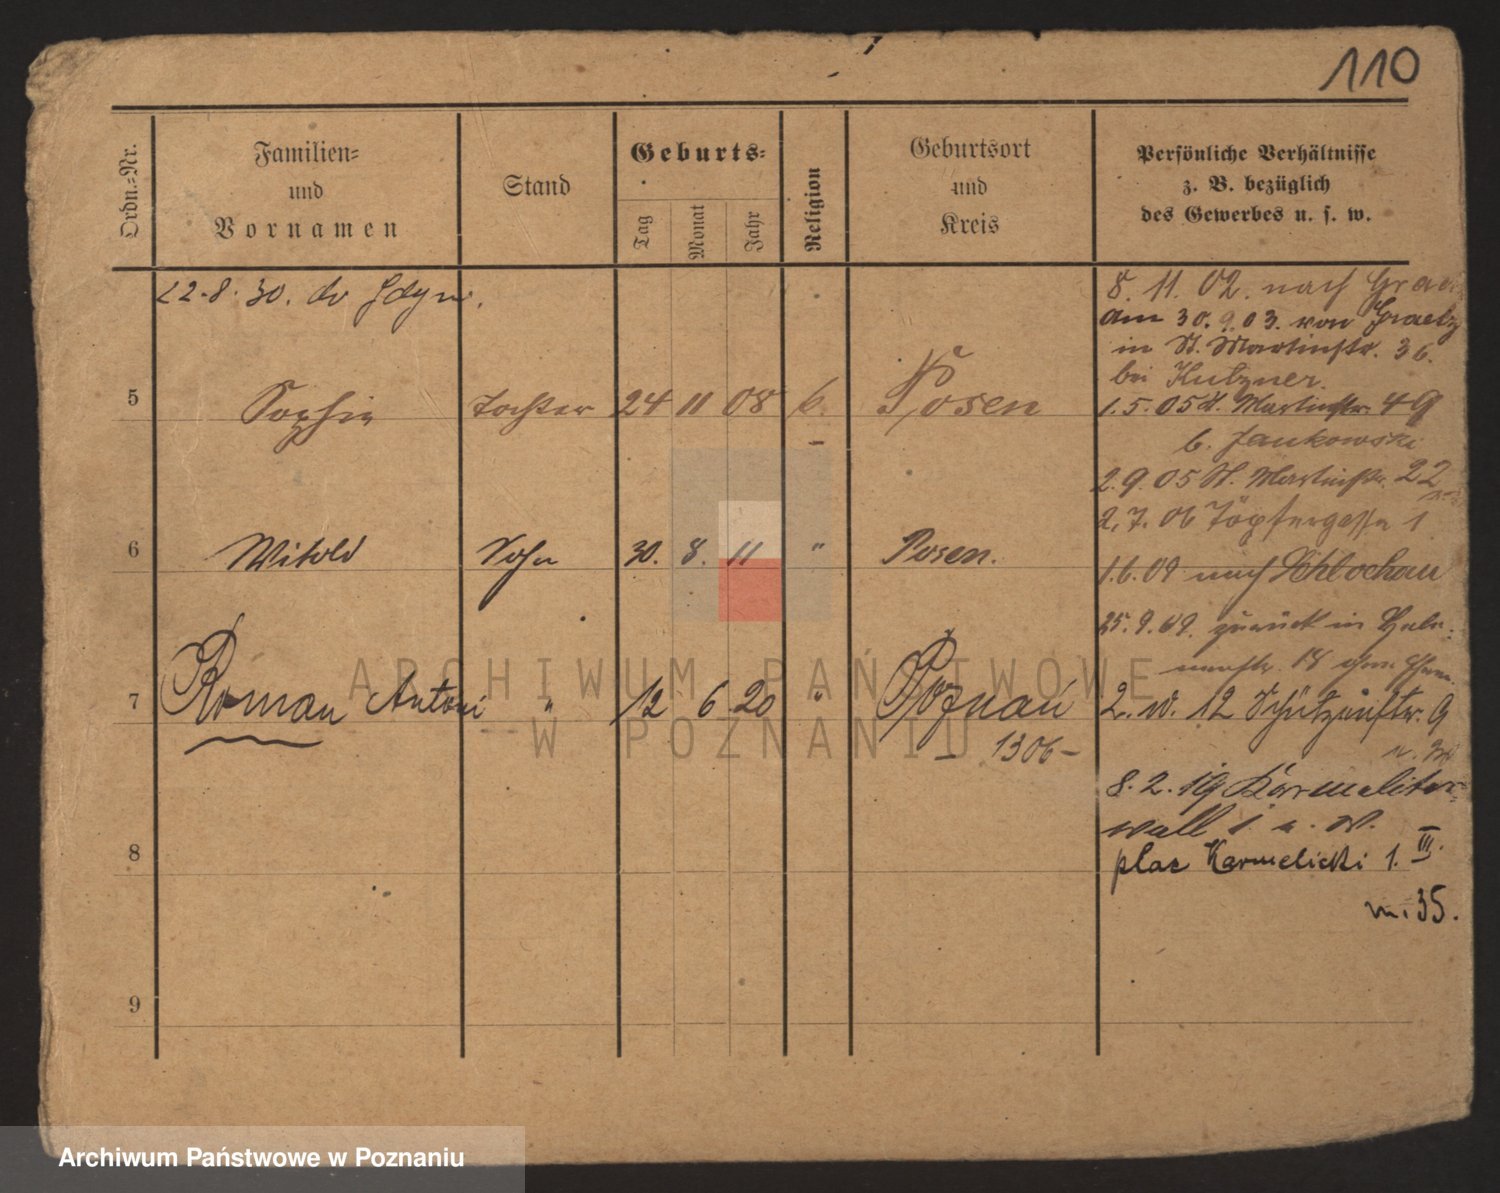 110
Ordn.-Nr.
Familien-
und
Vornamen
Stand
Geburts-
Tag
Monat
Jahr
Religion
Geburtsort
und
Kreis
Persönliche Verhältnisse
z. B. bezüglich
des Gewerbes u. s. w.
22.8.30. do Gdyni.
8. 11. 02. nach
am 30.9.03. von Graetz
in St. Martinstr. 36.
bei Kutzner.
5 Sophie Tochter 24 11 08 Posen
1.5.05 St. Martinstr. 49
b. Jankowski
2.9.05 St. Martinstr. 22
2.7.06 Töpfergasse 1
6 Witold Sohn 30. 8. 11 " Posen.
1.6.09 nach Schlochau
25.9.09. zurück in
18
7 Roman Antoni " 12 6 20 " Poznań
- 1306 -
2. 12 Schützenstr. 9
8.2.19 Karmeliter-
wall 1.
8
plac Karmelicki 1. III.
m. 35.
9
ARCHIWUM PAŃSTWOWE
W POZNANIU
Archiwum Państwowe w Poznaniu